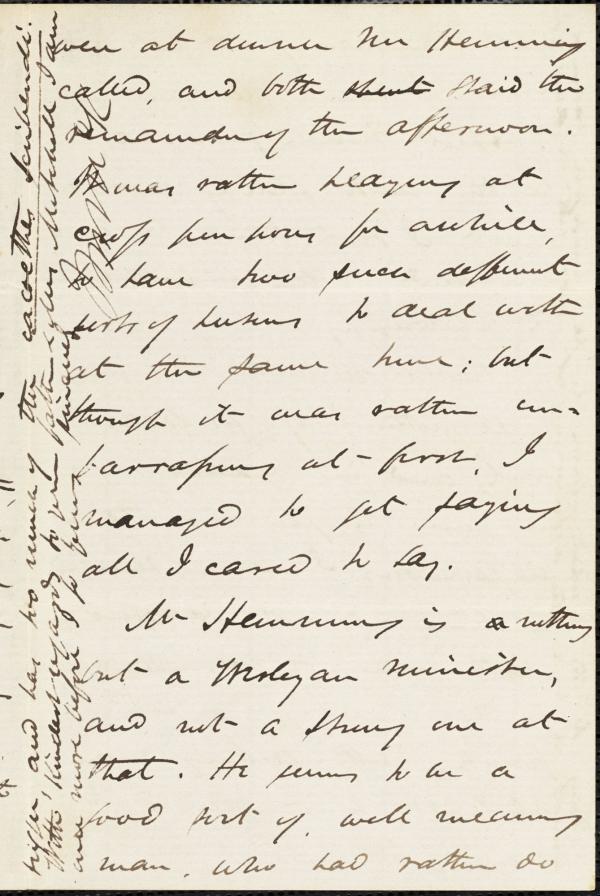 were at dinner Mr Hemming
called, and both staid the
remainder of the afternoon.
It was rather playing at
cross purposes for awhile,
to have two such different
sorts of to deal with
at the same time; but
though it was rather em=
barrassing at first, I
managed to get saying
all I cared to say.
Mr Hemming is nothing
but a Wesleyan minister,
and not a strong one at
that. He seems to be a
good sort of well meaning
man, who had rather do
and has too much of the cacoethes scribendi.
With kindest regards to your Mitchell I am
once more before I